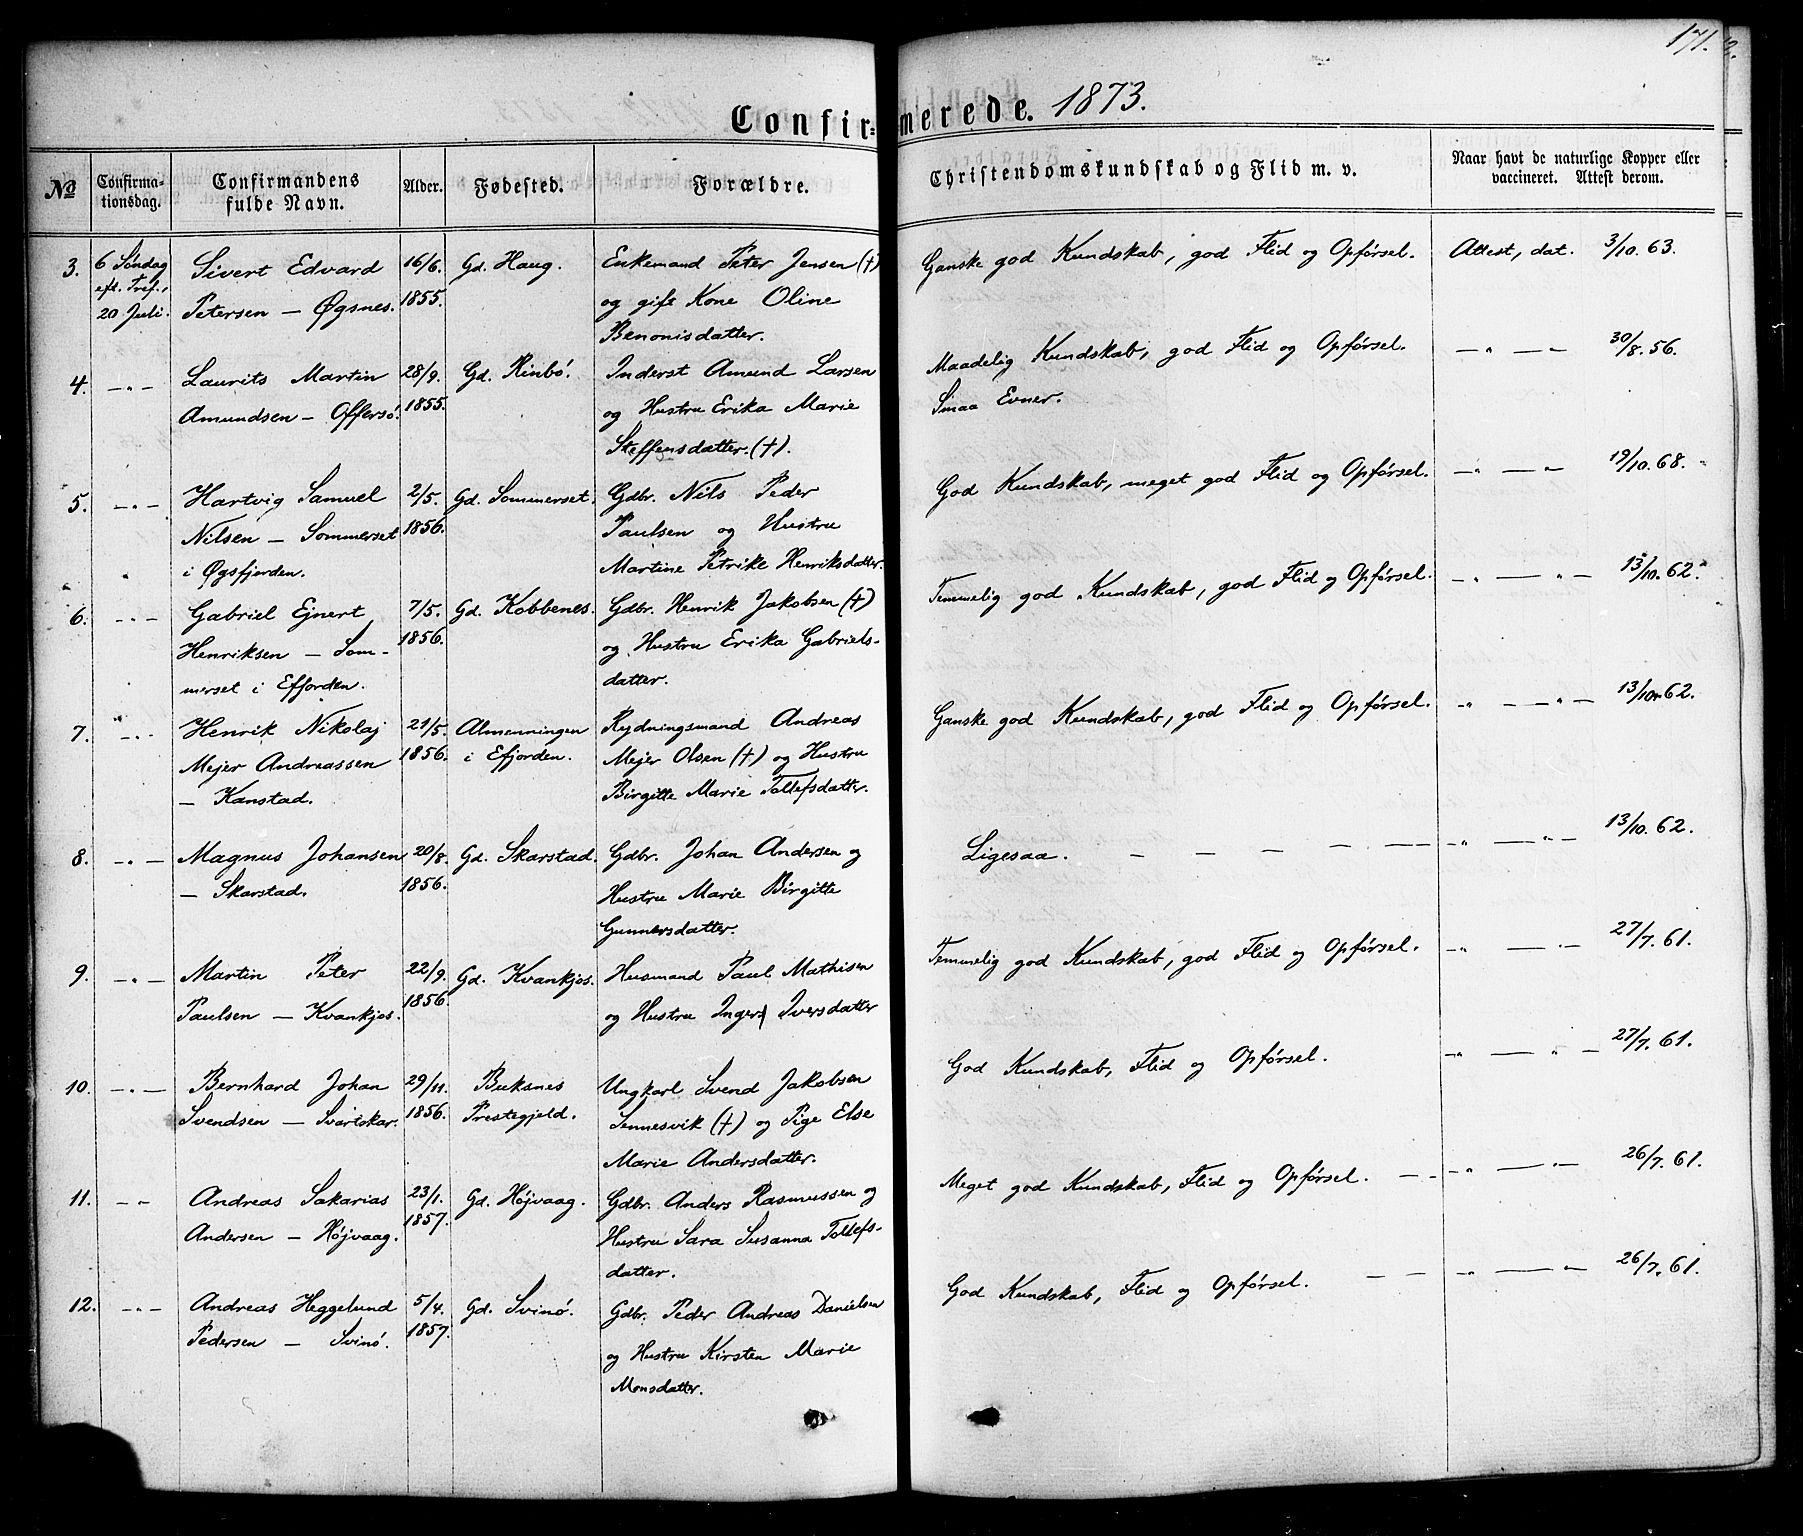 171.
Confir= merede. 1873.
№ Confirma-tionsdag. Confirmandens fulde Navn. Alder. Fødested. Forældre. Christendomskundskab og Flid m. v. Naar havt de naturlige Kopper eller vaccineret. Attest derom.
3. 6 Söndag Sivert Edvard 16/6. Gd. Haug. Enkemand Peter Jensen (+) Ganske god Kundskab, god Flid og Opförsel. Attest, dat. 3/10. 63.
eft. Tref., Petersen – Øgsnes. 1855. og gift Kone Oline
20 Juli. Benonisdatter.
4. –„– Laurits Martin 28/9. Gd. Rinbö. Inderst Amund Larsen Maadelig Kundskab, god Flid og Opförsel. –„–„– 30/8. 56.
Amundsen – Offersö. 1855. og Hustru Erika Marie Smaa Evner.
Steffensdatter. (+).
5. –„– Hartvig Samuel 2/5. Gd. Sommerset. Gdbr. Nils Peder God Kundskab, meget god Flid og Opförsel. –„–„– 19/10. 68.
Nilsen – Sommerset 1856. Paulsen og Hustru
i Øgsfjorden. Martine Petrike Henriksdatter.
6. –„– Gabriel Ejnert 7/5. Gd. Kobbenes. Gdbr. Henrik Jakobsen (+) Temmelig god Kundskab, god Flid og Opförsel. –„–„– 13/10. 62.
Henriksen – Som- 1856. og Hustru Erika Gabriels-
merset i Efforden. datter.
7. –„– Henrik Nikolaj 21/5. Almenningen Rydningsmand Andreas Ganske god Kundskab, god Flid og Opförsel. „–„– 13/10. 62.
Mejer Andreassen 1856. i Efjorden. Mejer Olsen (+) og Hustru
– Kanstad. Birgitte Marie Tollefsdatter.
8. –„– Magnus Johansen 20/8. Gd. Skarstad. Gdbr. Johan Andersen og Ligesaa. – – – – – –„–„– 13/10. 62.
– Skarstad. 1856. Hustru Marie Birgitte
Gunnersdatter.
9. –„– Martin Peter 22/9. Gd. Kvankjos. Husmand Paul Mathisen Temmelig god Kundskab, god Flid og Opförsel. –„–„– 27/7. 61.
Paulsen – Kvankjos. 1856. og Hustru Inger Iversdatter
10. –„– Bernhard Johan 29/11. Buksnes Ungkarl Svend Jakobsen God Kundskab, Flid og Opförsel. –„–„– 27/7. 61.
Svendsen – Svartskar. 1856. Prestegjeld. Sennesvik (+) og Pige Else
Marie Andersdatter.
11. –„– Andreas Sakarias 23/1. Gd. Höjvaag. Gdbr. Anders Rasmussen og Meget god Kundskab, Flid og Opförsel. – –„–„– 26/7. 61.
Andersen – Höjvaag. 1857. Hustru Sara Susanna Tollefs-
datter.
12. –„– Andreas Heggelund 5/4. Gd. Svinö. Gdbr. Peder Andreas Danielsen God Kundskab, Flid og Opförsel. – – „–„– 26/7. 61.
Pedersen – Svinö. 1857. og Hustru Kirsten Marie
Monsdatter.